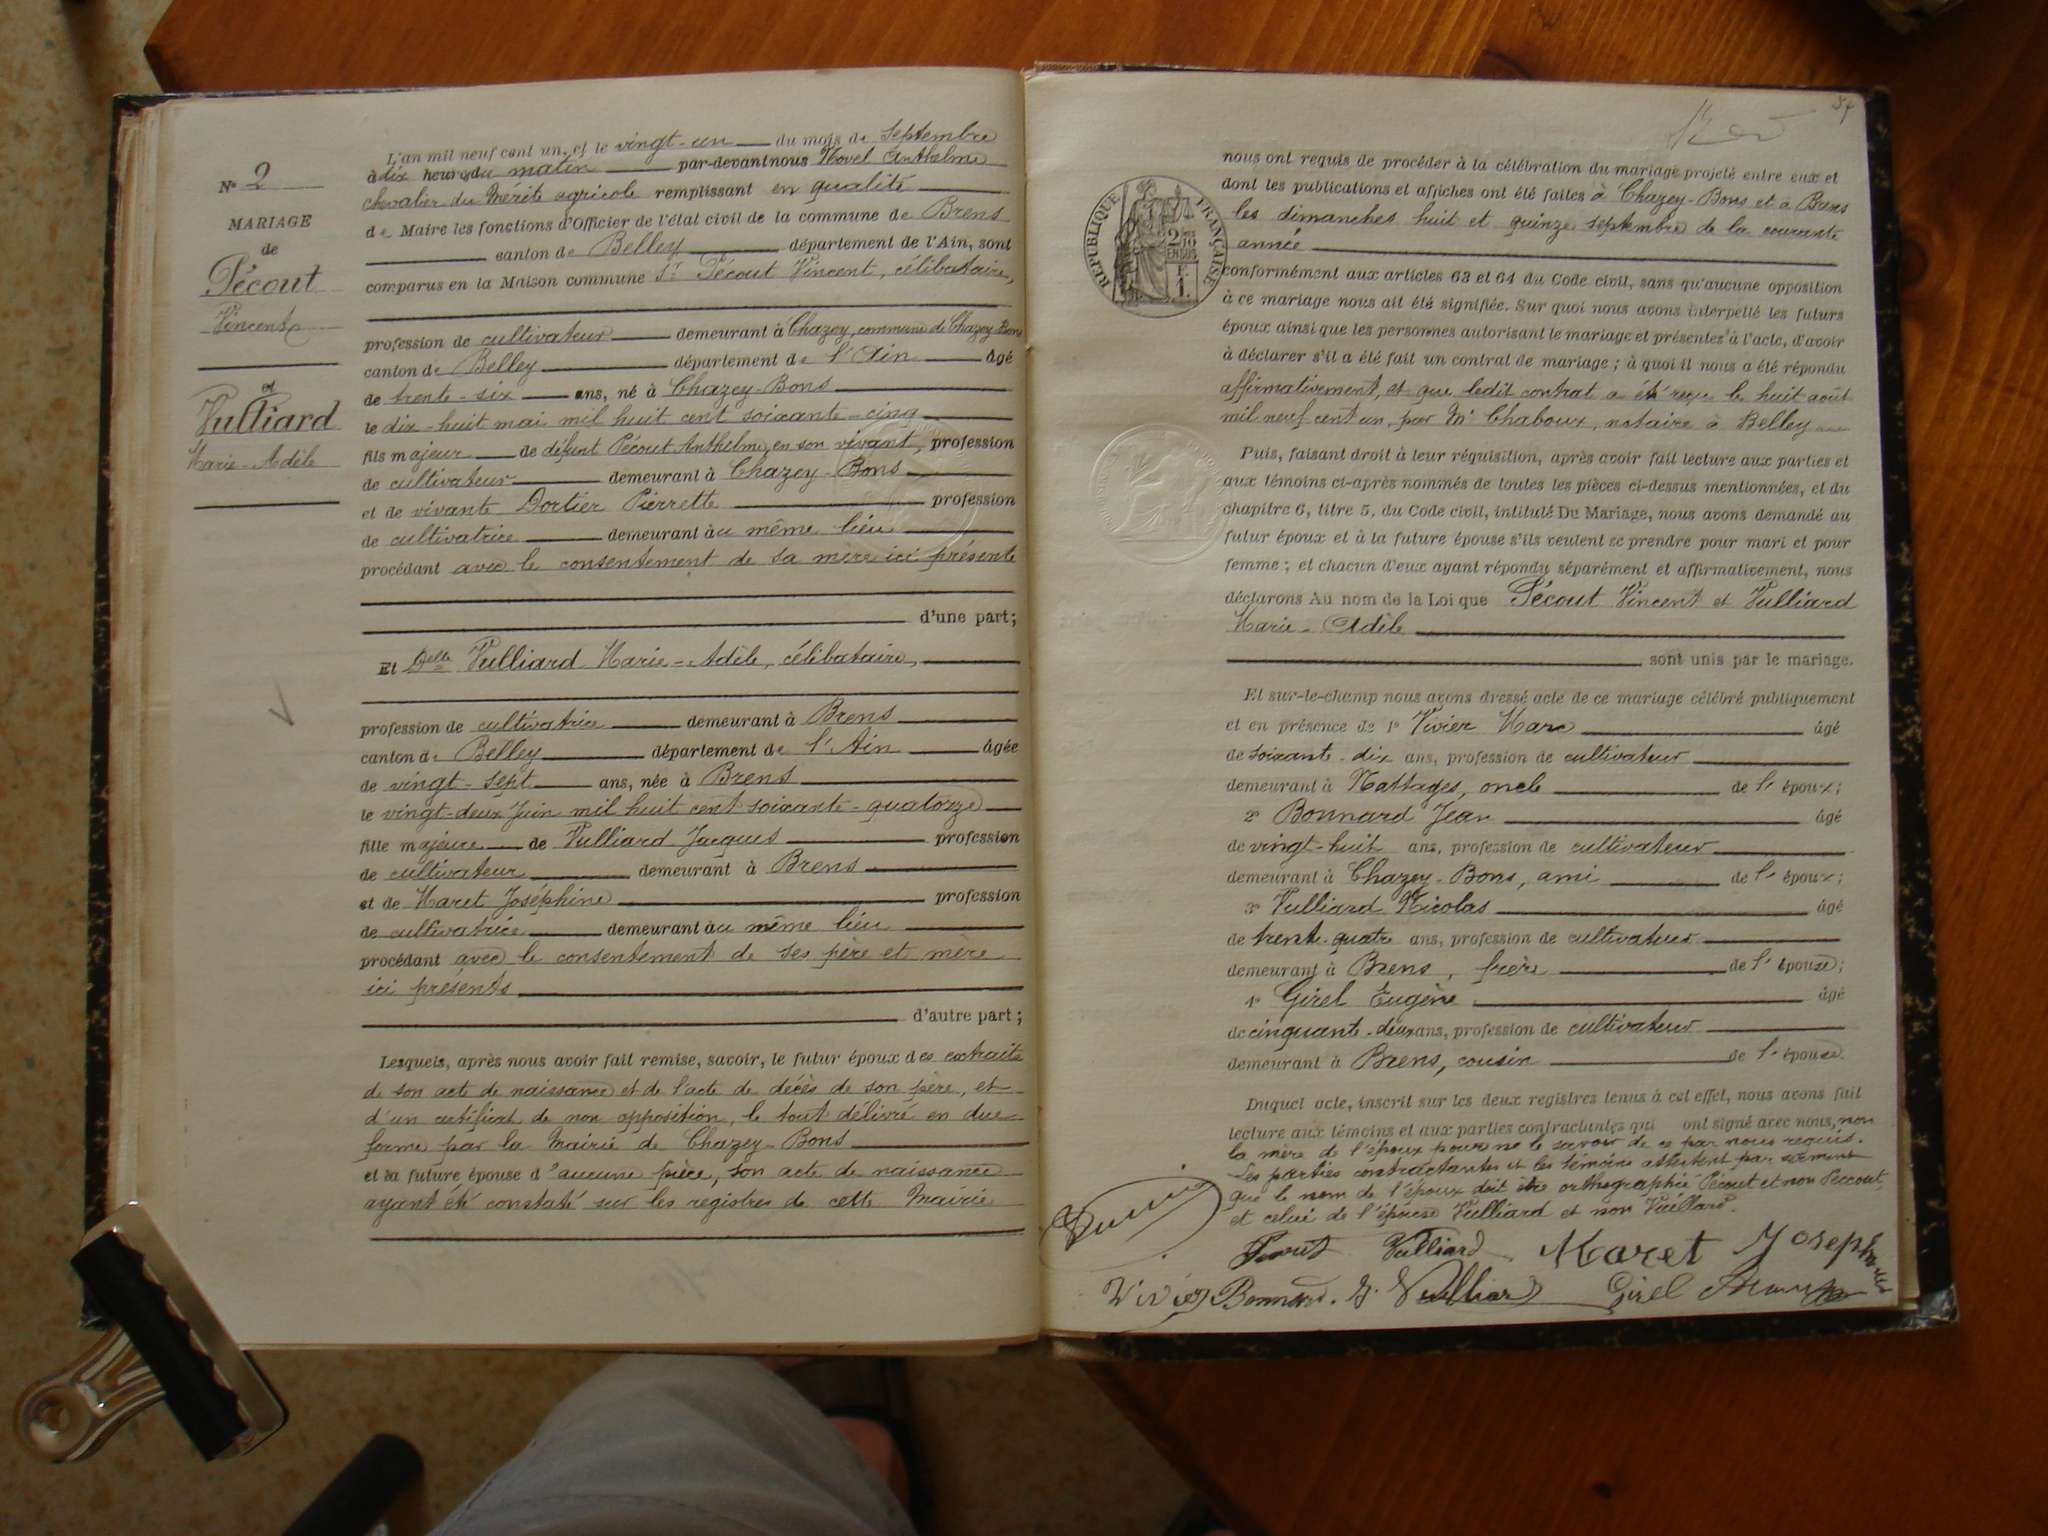 N° 2
MARIAGE
de
Pécout
Vincent
et
Vulliard
Marie-Adèle
L'an mil neuf cent un, et le vingt-un du mois de septembre
à dix heures du matin par-devant nous Hovel Anthelme
chevalier du Mérite agricole remplissant en qualité
de Maire les fonctions d'Officier de l'état civil de la commune de Brens
canton de Belley département de l'Ain, sont
comparus en la Maison commune Sr Pécout Vincent, célibataire,
profession de cultivateur demeurant à Chazey, commune de Chazey-Bons
canton de Belley département de l'Ain âgé
de trente-six ans, né à Chazey-Bons
le dix-huit mai mil huit cent soixante-cinq
fils majeur de défunt Pécout Anthelme, en son vivant, profession
de cultivateur demeurant à Chazey-Bons
et de vivante Dortier Pierrette profession
de cultivatrice demeurant au même lieu
procédant avec le consentement de sa mère ici présente
d'une part;
Et Delle Vulliard Marie-Adèle, célibataire,
profession de cultivatrice demeurant à Brens
canton de Belley département de l'Ain âgée
de vingt-sept ans, née à Brens
le vingt-deux Juin mil huit cent soixante-quatorze
fille majeure de Vulliard Jacques profession
de cultivateur demeurant à Brens
et de Maret Joséphine profession
de cultivatrice demeurant au même lieu
procédant avec le consentement de ses père et mère
ici présents
d'autre part;
Lesquels, après nous avoir fait remise, savoir, le futur époux des extraits
de son acte de naissance et de l'acte de décès de son père, et
d'un certificat de non opposition, le tout délivré en due
forme par la Mairie de Chazey-Bons
et la future épouse d'aucune pièce, son acte de naissance
ayant été constaté sur les registres de cette Mairie
REPUBLIQUE FRANÇAISE
nous ont requis de procéder à la célébration du mariage projeté entre eux et
dont les publications et affiches ont été faites à Chazey-Bons et à Brens
les dimanches huit et quinze septembre de la courante
année
conformément aux articles 63 et 64 du Code civil, sans qu'aucune opposition
à ce mariage nous ait été signifiée. Sur quoi nous avons interpellé les futurs
époux ainsi que les personnes autorisant le mariage et présentes à l'acte, d'avoir
à déclarer s'il a été fait un contrat de mariage; à quoi il nous a été répondu
affirmativement, et que ledit contrat a été reçu le huit août
mil neuf cent un, par Me Chaboux, notaire à Belley
Puis, faisant droit à leur réquisition, après avoir fait lecture aux parties et
aux témoins ci-après nommés de toutes les pièces ci-dessus mentionnées, et du
chapitre 6, titre 5, du Code civil, intitulé Du Mariage, nous avons demandé au
futur époux et à la future épouse s'ils veulent se prendre pour mari et pour
femme; et chacun d'eux ayant répondu séparément et affirmativement, nous
déclarons Au nom de la Loi que Pécout Vincent et Vulliard
Marie-Adèle
sont unis par le mariage.
Et sur-le-champ nous avons dressé acte de ce mariage célébré publiquement
et en présence de 1° Vivier Marc âgé
de soixante-dix ans, profession de cultivateur
demeurant à Nattages, oncle de l'époux;
2° Bonnard Jean âgé
de vingt-huit ans, profession de cultivateur
demeurant à Chazey-Bons, ami de l'époux;
3° Vulliard Nicolas âgé
de trente-quatre ans, profession de cultivateur
demeurant à Brens, frère de l'épouse;
4° Girel Eugène âgé
de cinquante-deux ans, profession de cultivateur
demeurant à Brens, cousin de l'épouse.
Duquel acte, inscrit sur les deux registres tenus à cet effet, nous avons fait
lecture aux témoins et aux parties contractantes qui ont signé avec nous, non
la mère de l'époux pour ne le savoir de ce par nous requis.
Les parties contractantes et les témoins attestent par serment
que le nom de l'époux doit être orthographié Pécout et non Peccout,
et celui de l'épouse Vulliard et non Vuillard.
Pecout Vulliard Maret Josephine
Vivier Bonnard. N. Vulliard Girel